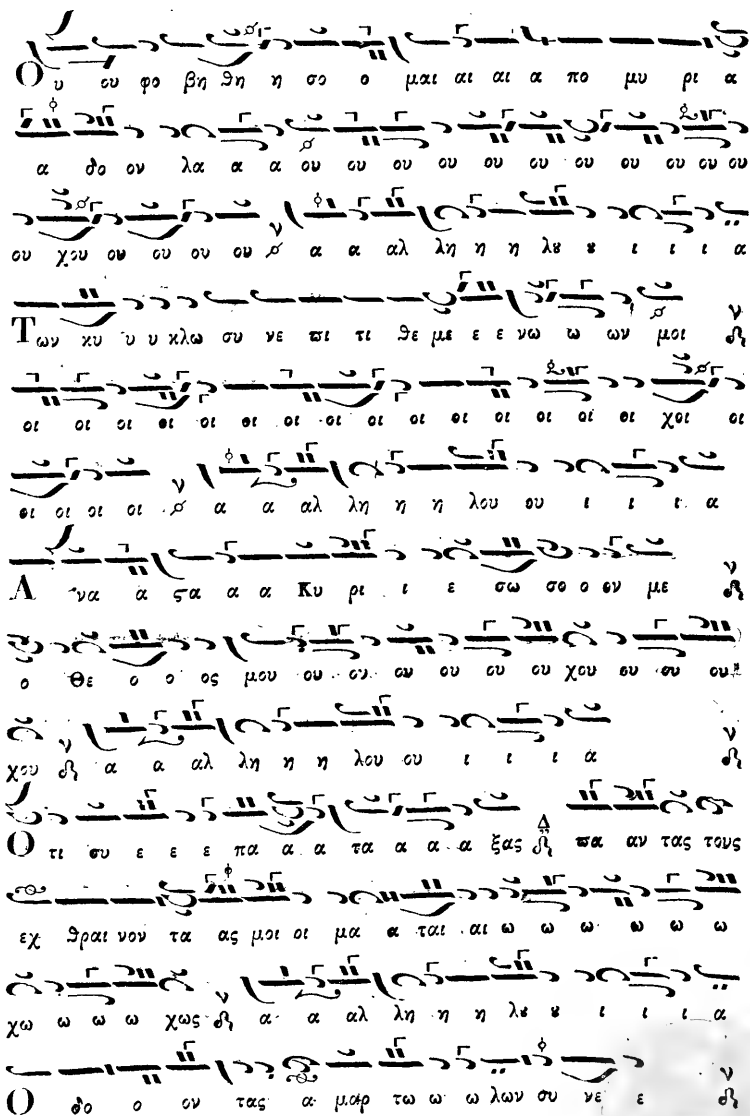 Ου ου φο βη θη η σο ο μαι αι αι α πο μυ ρι α
α δο ον λα α α ου ου ου ου ου ου ου ου ου ου ου
ου χου ου ου ου ου ν α α αλ λη η η λȣ ȣ ι ι ι α
Των κυ υ υ κλω συ νε πι τι θε με ε ε νω ω ων μοι ν
οι οι οι οι οι οι οι οι οι οι οι οι οι οι οι χοι οι
οι οι οι οι ν α α αλ λη η η λου ου ι ι ι α
Α να α ϛα α α Κυ ρι ι ε σω σο ο ον με ν
ο Θε ο ο ος μου ου ου ου ου ου ου χου ου ου ου
χου ν α α αλ λη η η λου ου ι ι ι α ν
Ο τι συ ε ε ε πα α α τα α α α ξας Δ πα αν τας τους
εχ θραι νον τα ας μοι οι μα α ται αι ω ω ω ω ω ω
χω ω ω ω χως ν α α αλ λη η η λȣ ȣ ι ι ι α
Ο δο ο ον τας α μαρ τω ω ω λων συ νε ε ν